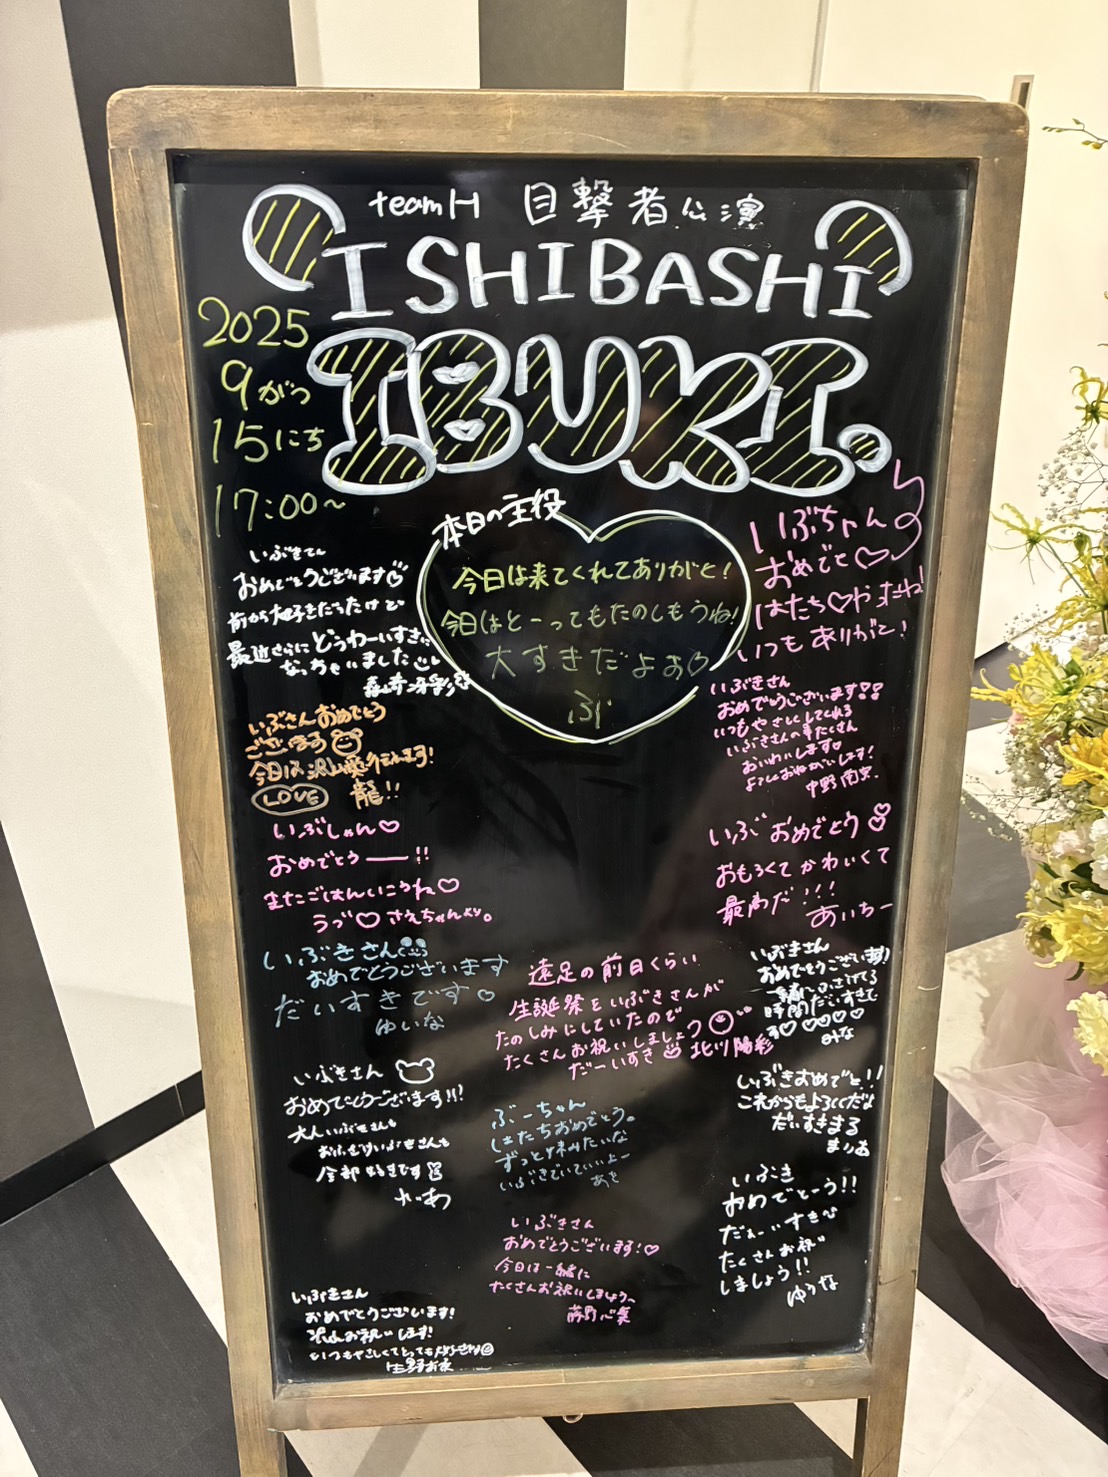 teamH 目撃者公演
ISHIBASHI
IBUKI.
2025
9がつ
15にち
17:00~
本日の主役
今日は来てくれてありがと!
今日はとーってもたのしもうね!
大すきだよぉ♡
ぶ
いぶちゃん
おめでと♡
はたち♡やったね!
いつもありがと!
おめでとうございます♡
前から大好きだったけど
最近さらにどうわーいすきに
なっちゃいました
いぶさんおめでとう
ございます
今日は沢山愛
LOVE 龍!!
いぶしゃん♡
おめでとうーー!!
またごはんいこうね♡
うづ♡さえちゃんより。
いぶきさん
おめでとうございます
だいすきです♡
ゆいな
いぶきさん
おめでとうございます!!
大人いぶきさんも
おふざけいぶきさんも
全部好きです
いぶきさん
おめでとうございます!
お祝いします!
いつもやさしくてとっても
遠足の前日くらい
生誕祭をいぶきさんが
たのしみにしていたので
たくさんお祝いしましょう
だーいすき 北川陽彩
ぶーちゃん
はたちおめでとう。
ずっと味みたいな
いぶきでいていいよー
あき
いぶきさん
おめでとうございます!♡
今日は一緒に
たくさんお祝いしましょう
いぶきさん
おめでとうございます!!
いつもやさしくしてくれる
いぶきさんの事たくさん
おいわいします
よろしくおねがいします!
いぶ おめでとう
おもろくてかわいくて
最高だ!!!
あいちー
いぶきさん
おめでとうございます!
時間だいすきで
す♡♡♡♡♡
みな
いぶきおめでと!!
これからもよろしくだよ
だいすきまる
まりあ
いぶき
おめでとーう!!
だぁーいすき
たくさんお祝い
しましょう!!
ゆうな